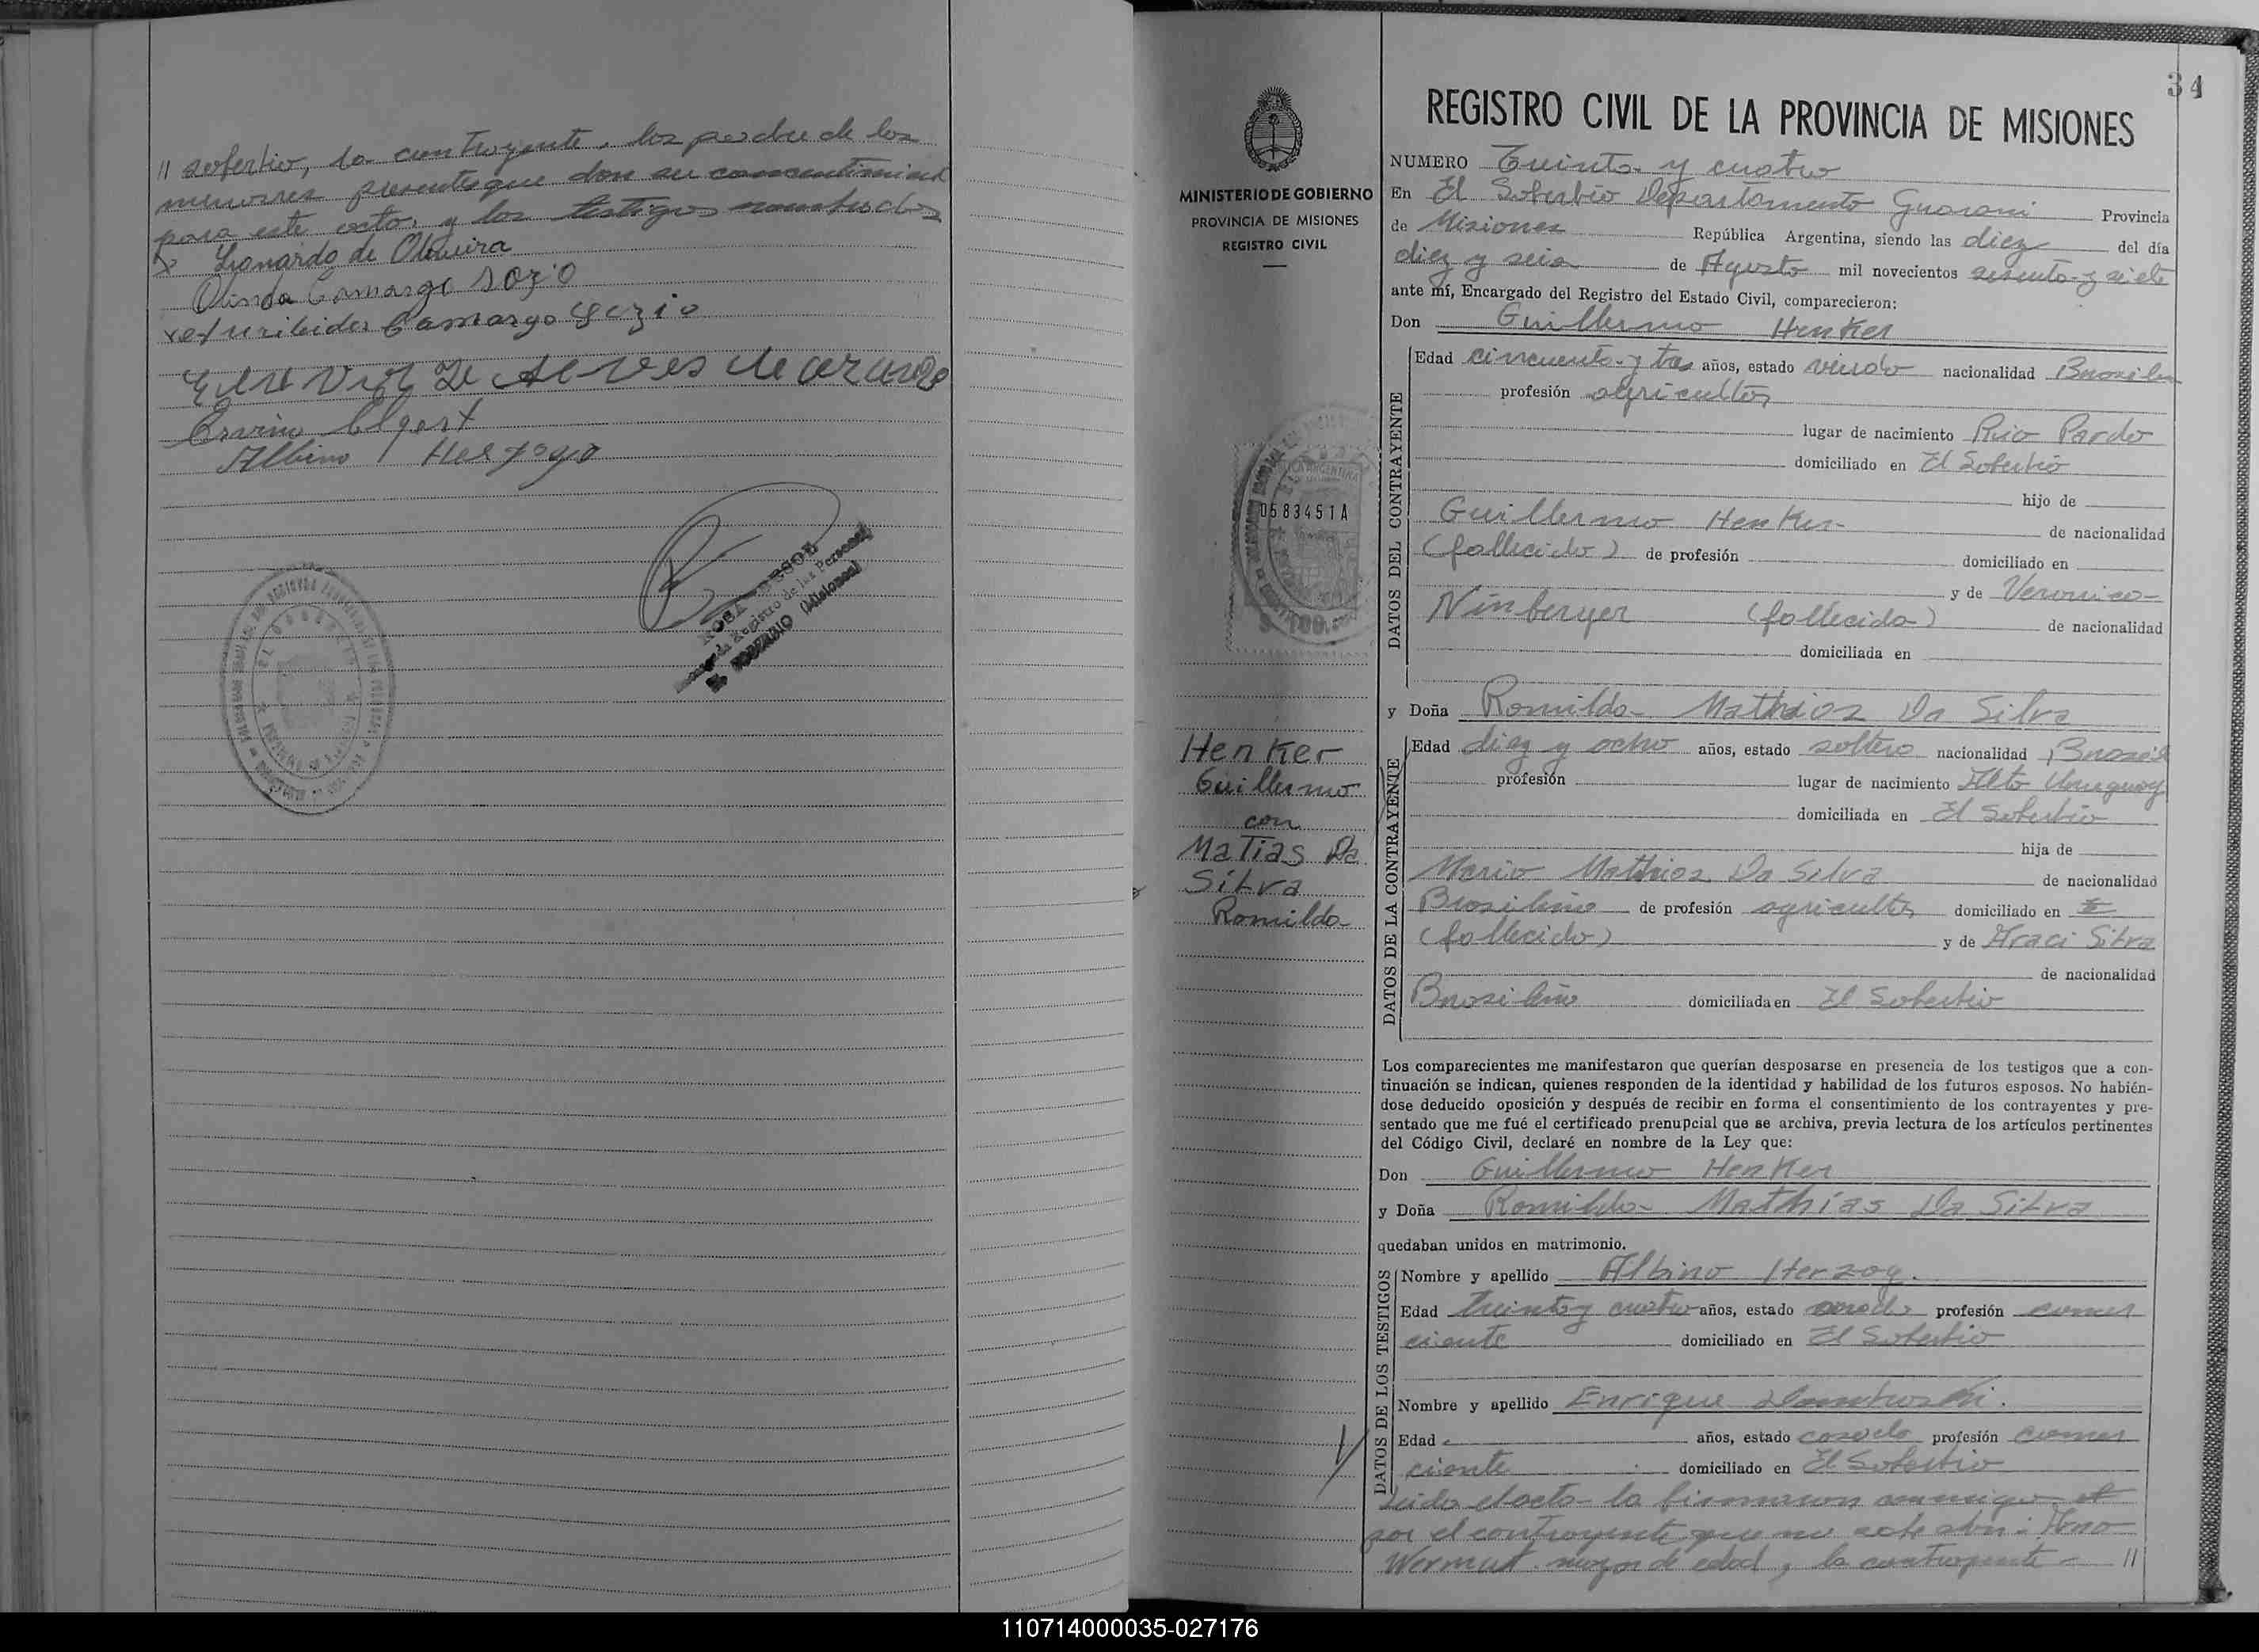 // soferbio, la contrayente, los padre de los
menores presentes que dan su consentimiento
para este acto, y los testigos nombrados
Leonardo de Oliveira
Olinda Camargo Sozio
Camargo
Alves de
Ervino Elgert
Albino Herzogo
ROSA
Registro de las Personas
EL SOBERBIO (Misiones)
34
MINISTERIO DE GOBIERNO
PROVINCIA DE MISIONES
REGISTRO CIVIL
0583451A
Henker
Guillermo
con
Matias Da
Silva
Romilda
REGISTRO CIVIL DE LA PROVINCIA DE MISIONES
NUMERO Treinta y cuatro
En El Soberbio Departamento Guarani Provincia
de Misiones República Argentina, siendo las diez del día
diez y seis de Agosto mil novecientos sesenta y siete
ante mí, Encargado del Registro del Estado Civil, comparecieron:
Don Guillermo Henker
DATOS DEL CONTRAYENTE
Edad cincuenta y tres años, estado viudo nacionalidad Brasileña
profesión agricultor
lugar de nacimiento Rio Pardo
domiciliado en El Soberbio
hijo de
Guillermo Henker de nacionalidad
(fallecido) de profesión domiciliado en
y de Veronica
Ninberger (fallecida) de nacionalidad
domiciliada en
y Doña Romilda Mathias Da Silva
DATOS DE LA CONTRAYENTE
Edad diez y ocho años, estado soltera nacionalidad Brasil
profesión lugar de nacimiento Alto Uruguay
domiciliada en El Soberbio
hija de
Mario Mathias Da Silva de nacionalidad
Brasileño de profesión agricultor domiciliado en
(fallecido) y de Araci Silva
de nacionalidad
Brasileña domiciliada en El Soberbio
Los comparecientes me manifestaron que querían desposarse en presencia de los testigos que a con-
tinuación se indican, quienes responden de la identidad y habilidad de los futuros esposos. No habién-
dose deducido oposición y después de recibir en forma el consentimiento de los contrayentes y pre-
sentado que me fué el certificado prenupcial que se archiva, previa lectura de los artículos pertinentes
del Código Civil, declaré en nombre de la Ley que:
Don Guillermo Henker
y Doña Romilda Mathias Da Silva
quedaban unidos en matrimonio.
DATOS DE LOS TESTIGOS
Nombre y apellido Albino Herzog.
Edad treinta y cuatro años, estado casado profesión comer
ciante domiciliado en El Soberbio
Nombre y apellido Enrique
Edad años, estado casado profesión comer
ciante domiciliado en El Soberbio
Leida el acta la firmaron conmigo
por el contrayente que no sabe
Wermut mayor de edad, la contrayente //
110714000035-027176